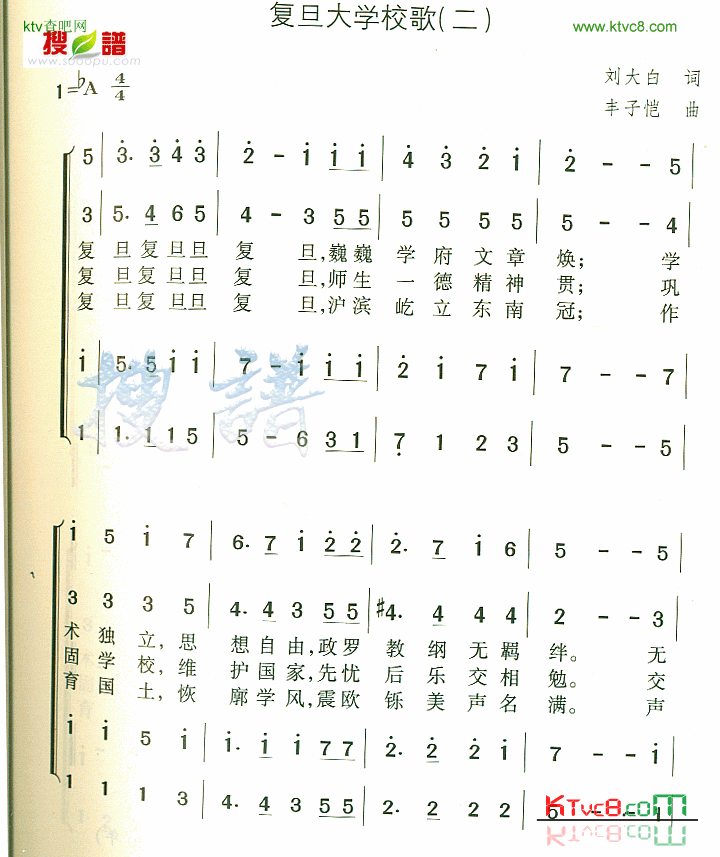 ktv查吧网
www.ktvc8.com
搜譜
www.sooopu.com
复旦大学校歌(二)
1=♭A 4/4
刘大白 词
丰子恺 曲
5 | 3̇. 3̇ 4̇ 3̇ | 2̇ - i i i | 4̇ 3̇ 2̇ i | 2̇ - - 5
3 | 5. 4 6 5 | 4 - 3 5 5 | 5 5 5 5 | 5 - - 4
复 旦复旦旦 复 旦,巍巍 学府文章焕; 学
复 旦复旦旦 复 旦,师生 一德精神贯; 巩
复 旦复旦旦 复 旦,沪滨 屹立东南冠; 作
i | 5. 5 i i | 7 - i i i | 2̇ i 7 i | 7 - - 7
1 | 1. 1 1 5 | 5 - 6 3 1 | 7̣ 1 2 3 | 5 - - 5
搜譜
i 5 i 7 | 6. 7 i 2̇ 2̇ | 2̇. 7 i 6 | 5 - - 5
3 3 3 5 | 4. 4 3 5 5 | #4. 4 4 4 | 2 - - 3
术独立,思 想自由,政罗 教纲无羁绊。 无
固学校,维 护国家,先忧 后乐交相勉。 交
育国土,恢 廓学风,震欧 铄美声名满。 声
i i 5 i | i. i i 7 7 | 2̇. 2̇ 2̇ i | 7 - - i
1 1 1 3 | 4. 4 3 5 5 | 2. 2 2 2 | 5 - - 1
KTvc8.com